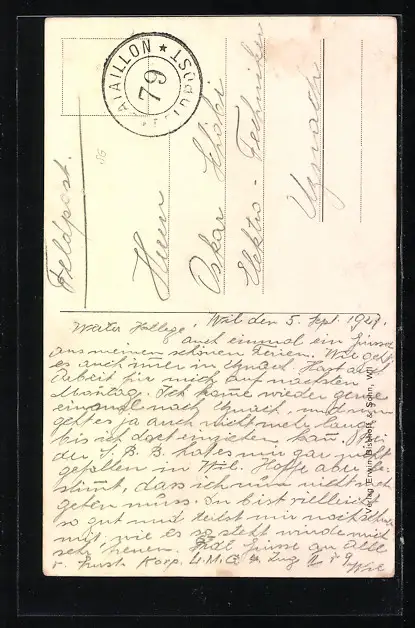 BATAILLON ★ 79 ★ FELDPOST
Feldpost.
Herrn
Oskar
Elektro-Techniker
Uznach
Wil den 5. Sept. 1927.
Werter Kollege!
auch einmal ein Grüsse
aus meinen schönen Ferien. Wie geht
es auch immer in Uznach. Hast auch
Arbeit für mich auf nächsten
Montag. Ich komme wieder gerne
einmal nach Uznach, und
geht es ja auch nicht mehr lange
bis ich dort einziehen kann. Bei
der S.B.B. hat es mir gar nicht
gefallen in Wil. Hoffe aber be-
stimmt, dass ich nun nicht noch
gehen muss. Du bist vielleicht
so gut und teilst mir noch schnell
mit, wie es so steht, würde mich
sehr freuen. Viel Grüsse an Alle
Korp. Zug II 79 Wil
Verlag Erwin Bischoff & Sohn, Wil